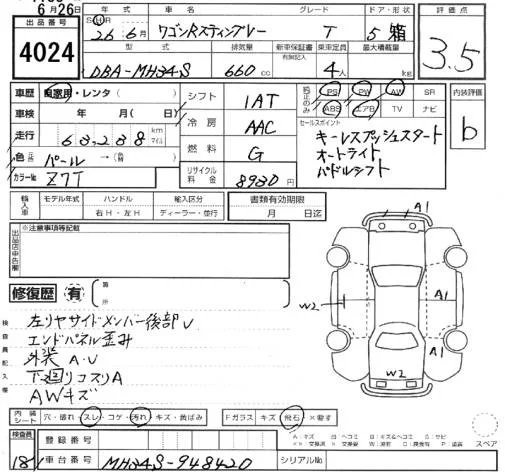 6月26日
出品番号
4024
年式 車名 グレード ドア・形状
26年 6月 ワゴンRスティングレー T 5 箱
型式 排気量 新車保証書 乗車定員 最大積載量
有無記入
DBA-MH34S 660cc 4人 kg
評価点
3.5
車歴 自家用・レンタ( )
車検 年 月( 日)
走行 63,238 km マイル
色 パール →(前 )
カラーNo Z7T
シフト 1AT
冷房 AAC
燃料 G
リサイクル料金 8930円
純正のみ PS PW AW SR
ABS エアB TV ナビ
セールスポイント
キーレスプッシュスタート
オートライト
パドルシフト
内装評価
b
輸入車 モデル年式 ハンドル 輸入区分
年 右H・左H ディーラー・並行
書類有効期限
月 日迄
出品店申告欄
※注意事項等記載
修復歴 有 箇所
検査員記入欄
左リヤサイドメンバー後部U
エンドパネル歪み
外装A・U
下廻リコスリA
AWキズ
A1
A1
A1
W2
W2
内装シート 穴・破れ・スレ・コゲ・汚れ・キズ・黄ばみ
Fガラス キズ 飛石 ×要す
スペア
検査員
18
登録番号
車台番号 MH34S-948420
シリアルNo